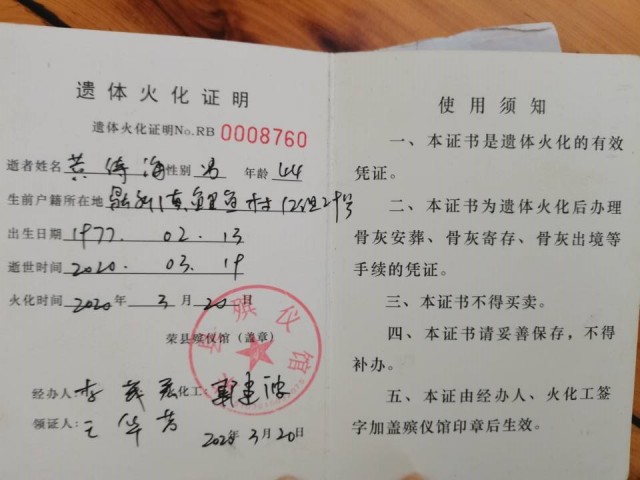 遗体火化证明
遗体火化证明No.RB 0008760
逝者姓名 黄 海 性别 男 年龄 44
生前户籍所在地 村12组24号
出生日期 1977. 02. 13
逝世时间 2020. 03. 19
火化时间 2020年 3 月 20 日
荣县殡仪馆（盖章）
经办人：李 火化工：建波
领证人：王华芳 2020年3月20日
殡仪馆
使用须知
一、本证书是遗体火化的有效
凭证。
二、本证书为遗体火化后办理
骨灰安葬、骨灰寄存、骨灰出境等
手续的凭证。
三、本证书不得买卖。
四、本证书请妥善保存，不得
补办。
五、本证由经办人、火化工签
字加盖殡仪馆印章后生效。